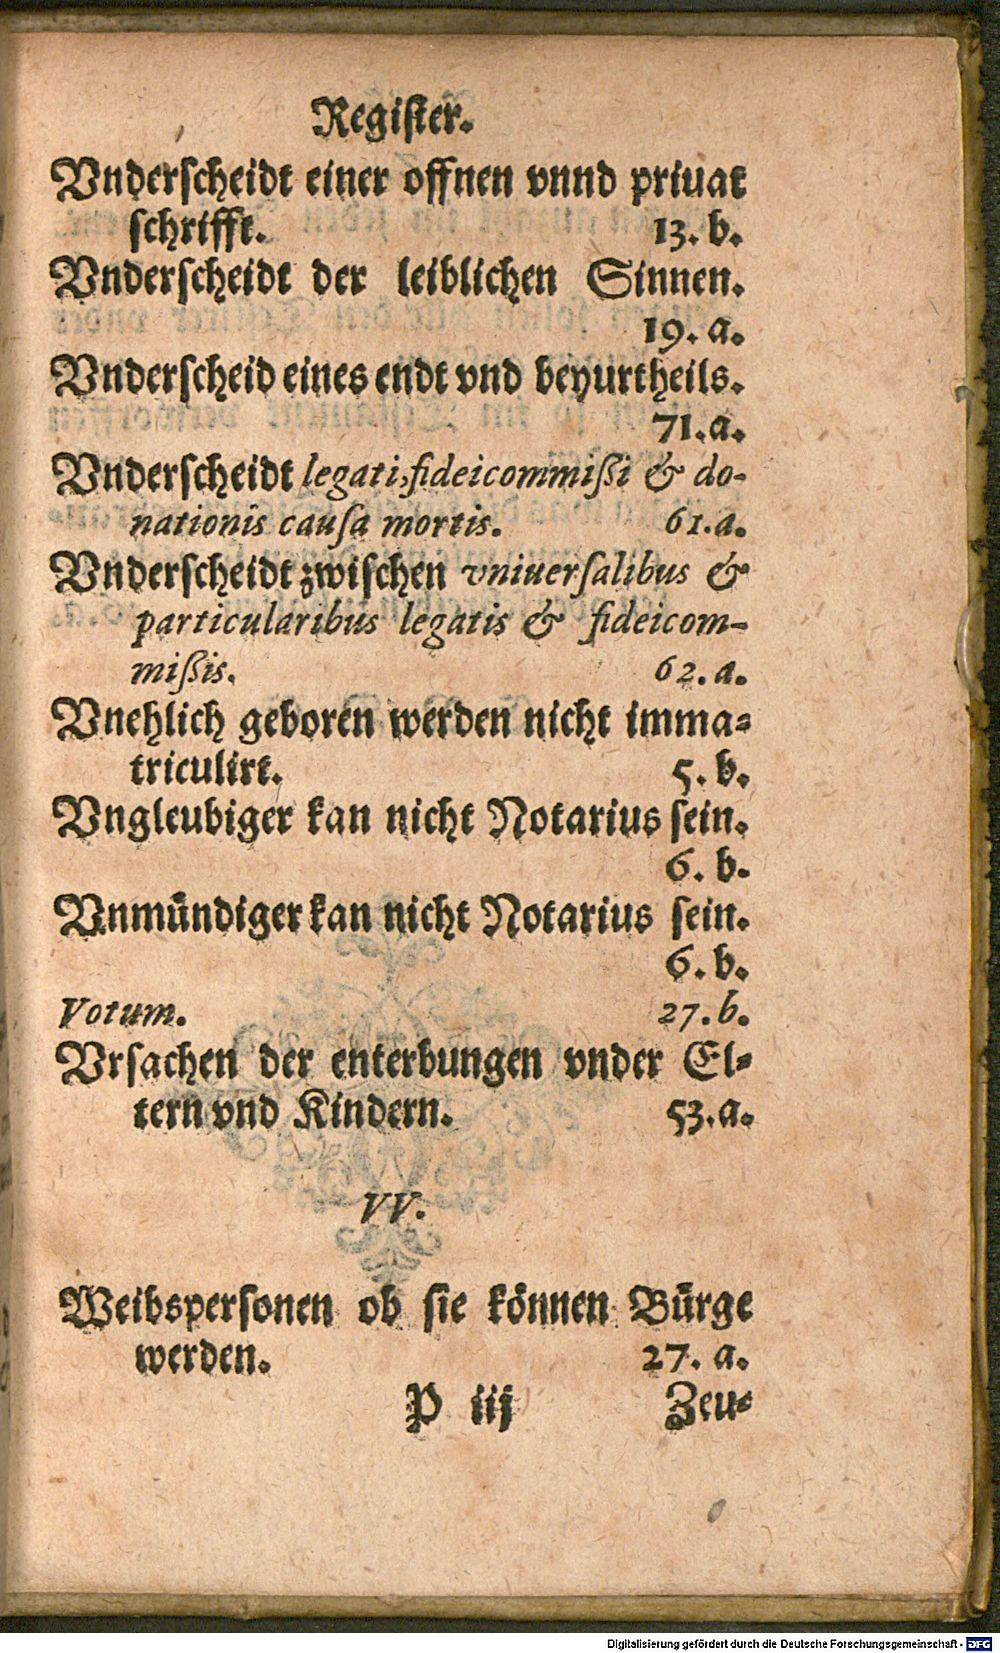 Register.
Vnderscheidt einer offnen vnnd priuat
schrifft. 13. b.
Vnderscheidt der leiblichen Sinnen.
19. a.
Vnderscheid eines endt vnd beyurtheils.
71. a.
Vnderscheidt legati, fideicommißi & do-
nationis causa mortis. 61. a.
Vnderscheidt zwischen vniuersalibus &
particularibus legatis & fideicom-
mißis. 62. a.
Vnehlich geboren werden nicht imma-
triculirt. 5. b.
Vngleubiger kan nicht Notarius sein.
6. b.
Vnmündiger kan nicht Notarius sein.
6. b.
Votum. 27. b.
Vrsachen der enterbungen vnder El-
tern vnd Kindern. 53. a.
VV.
Weibspersonen ob sie können Bürge
werden. 27. a.
P iij Zeu-
Digitalisierung gefördert durch die Deutsche Forschungsgemeinschaft - DFG